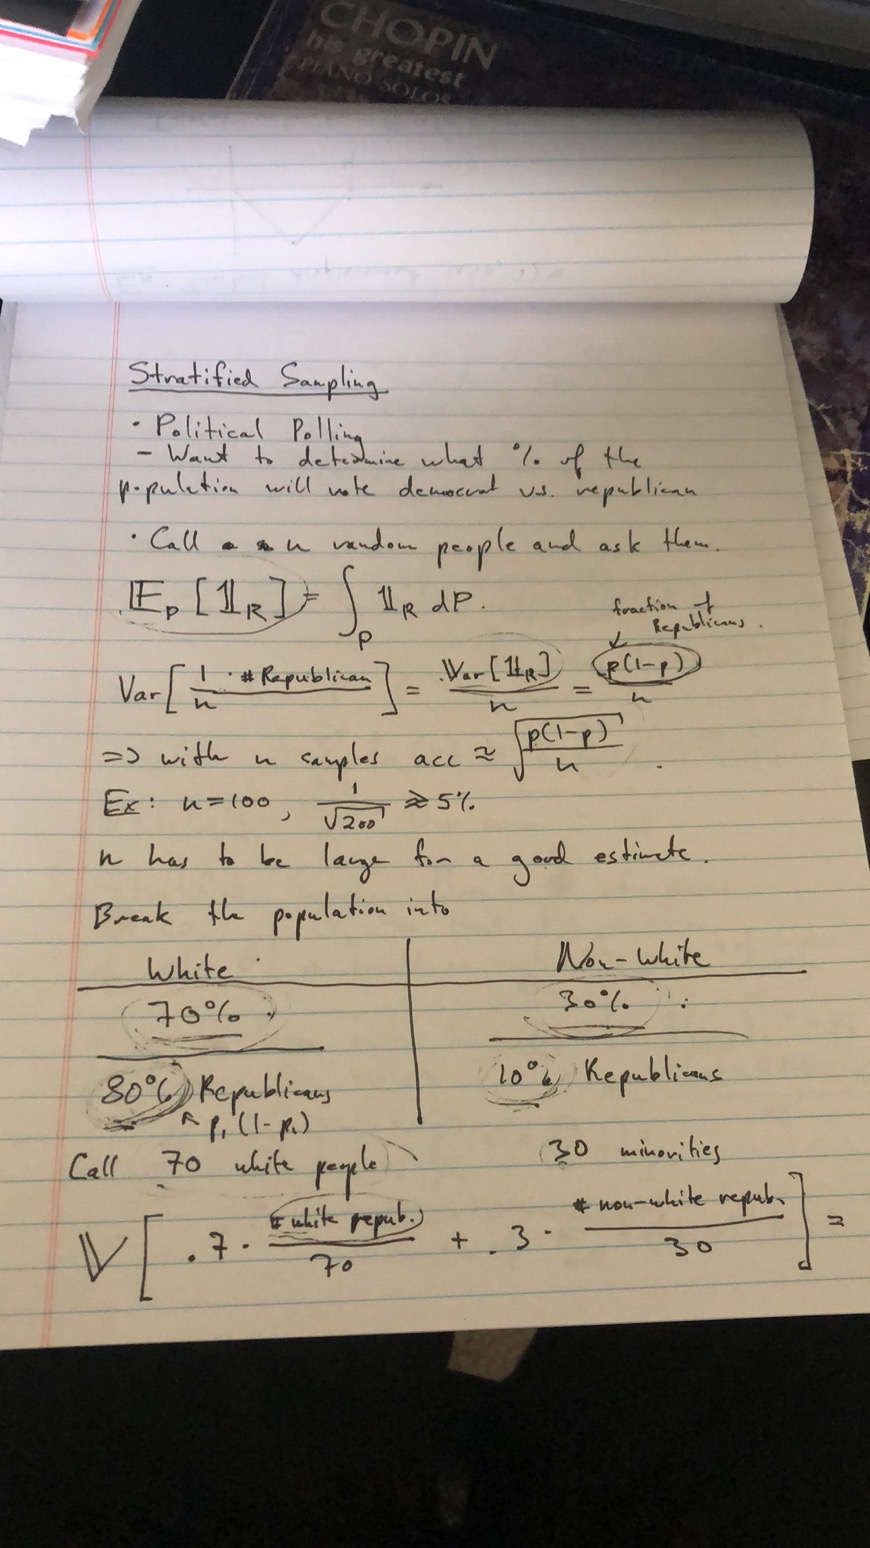 CHOPIN
his greatest
PIANO SOLOS
Stratified Sampling
· Political Polling
- Want to determine what % of the
population will vote democrat vs. republican
· Call n random people and ask them.
𝔼_P [𝟙_R] = ∫_P 𝟙_R dP.
fraction of
Republicans.
Var[1/n · # Republican] = Var[𝟙_R]/n = p(1-p)/n
=> with n samples acc ≈ √(p(1-p)/n).
Ex: n=100, 1/√200 ≈ 5%
n has to be large for a good estimate.
Break the population into
White Non-White
70% 30%
80% Republicans 10% Republicans
p₁(1-p₁)
Call 70 white people 30 minorities
𝕍[.7 · # white repub./70 + .3 · # non-white repub./30] =